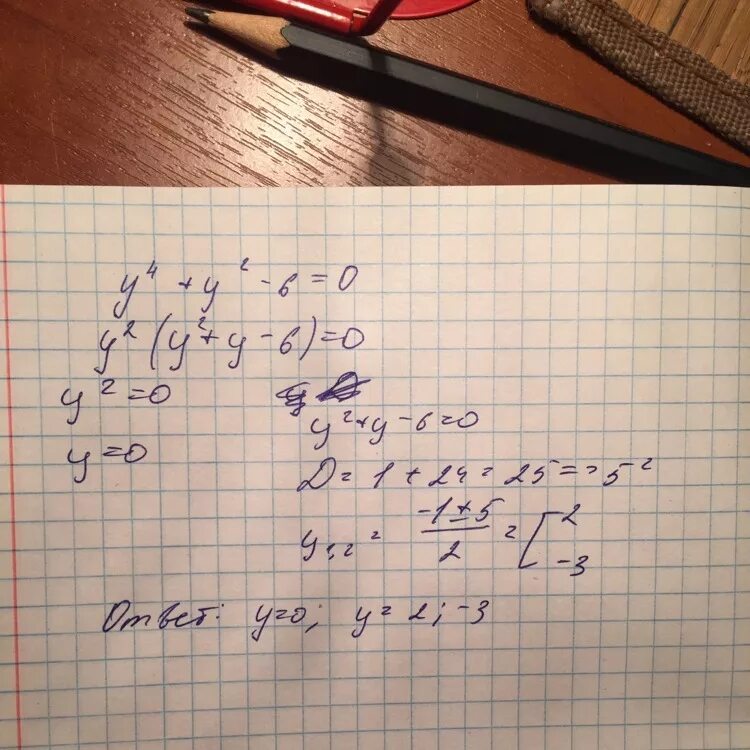 y⁴ + y² - 6 = 0
y² (y² + y - 6) = 0
y² = 0
y = 0
y² + y - 6 = 0
D = 1 + 24 = 25 = = 5²
y₁,₂ = (-1 ± 5)/2 = [2
-3
Ответ: y=0; y = 2; -3